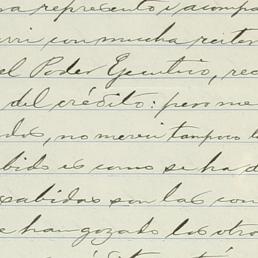 na represento i acompa
urri con mucha reiter
el Poder Ejecutivo, rec
del crédito: pero me
dos, no merecí tampoco l
bido es como se ha d
sabidas son las con
e han gozado los otro